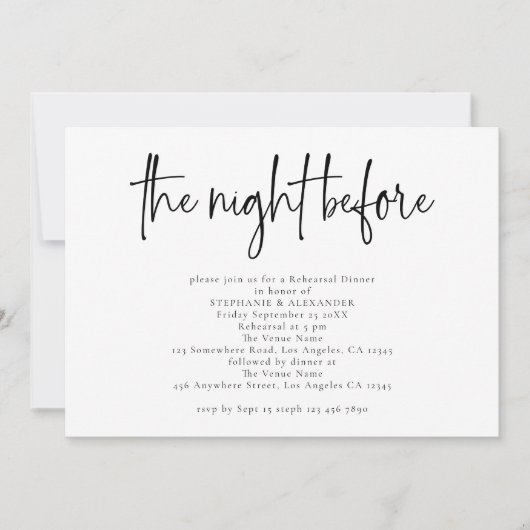 the night before
please join us for a Rehearsal Dinner
in honor of
STEPHANIE & ALEXANDER
Friday September 25 20XX
Rehearsal at 5 pm
The Venue Name
123 Somewhere Road, Los Angeles, CA 12345
followed by dinner at
The Venue Name
456 Anywhere Street, Los Angeles CA 12345
rsvp by Sept 15 steph 123 456 7890